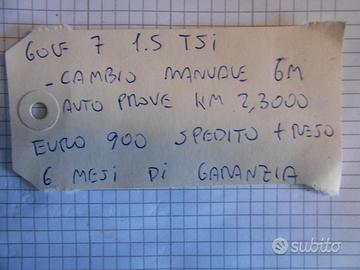 GOLF 7 1.5 TSi
- CAMBIO MANUALE 6M
AUTO PROVE KM 2,3000
EURO 900 SPEDITO + RESO
6 MESI DI GARANZIA
subito